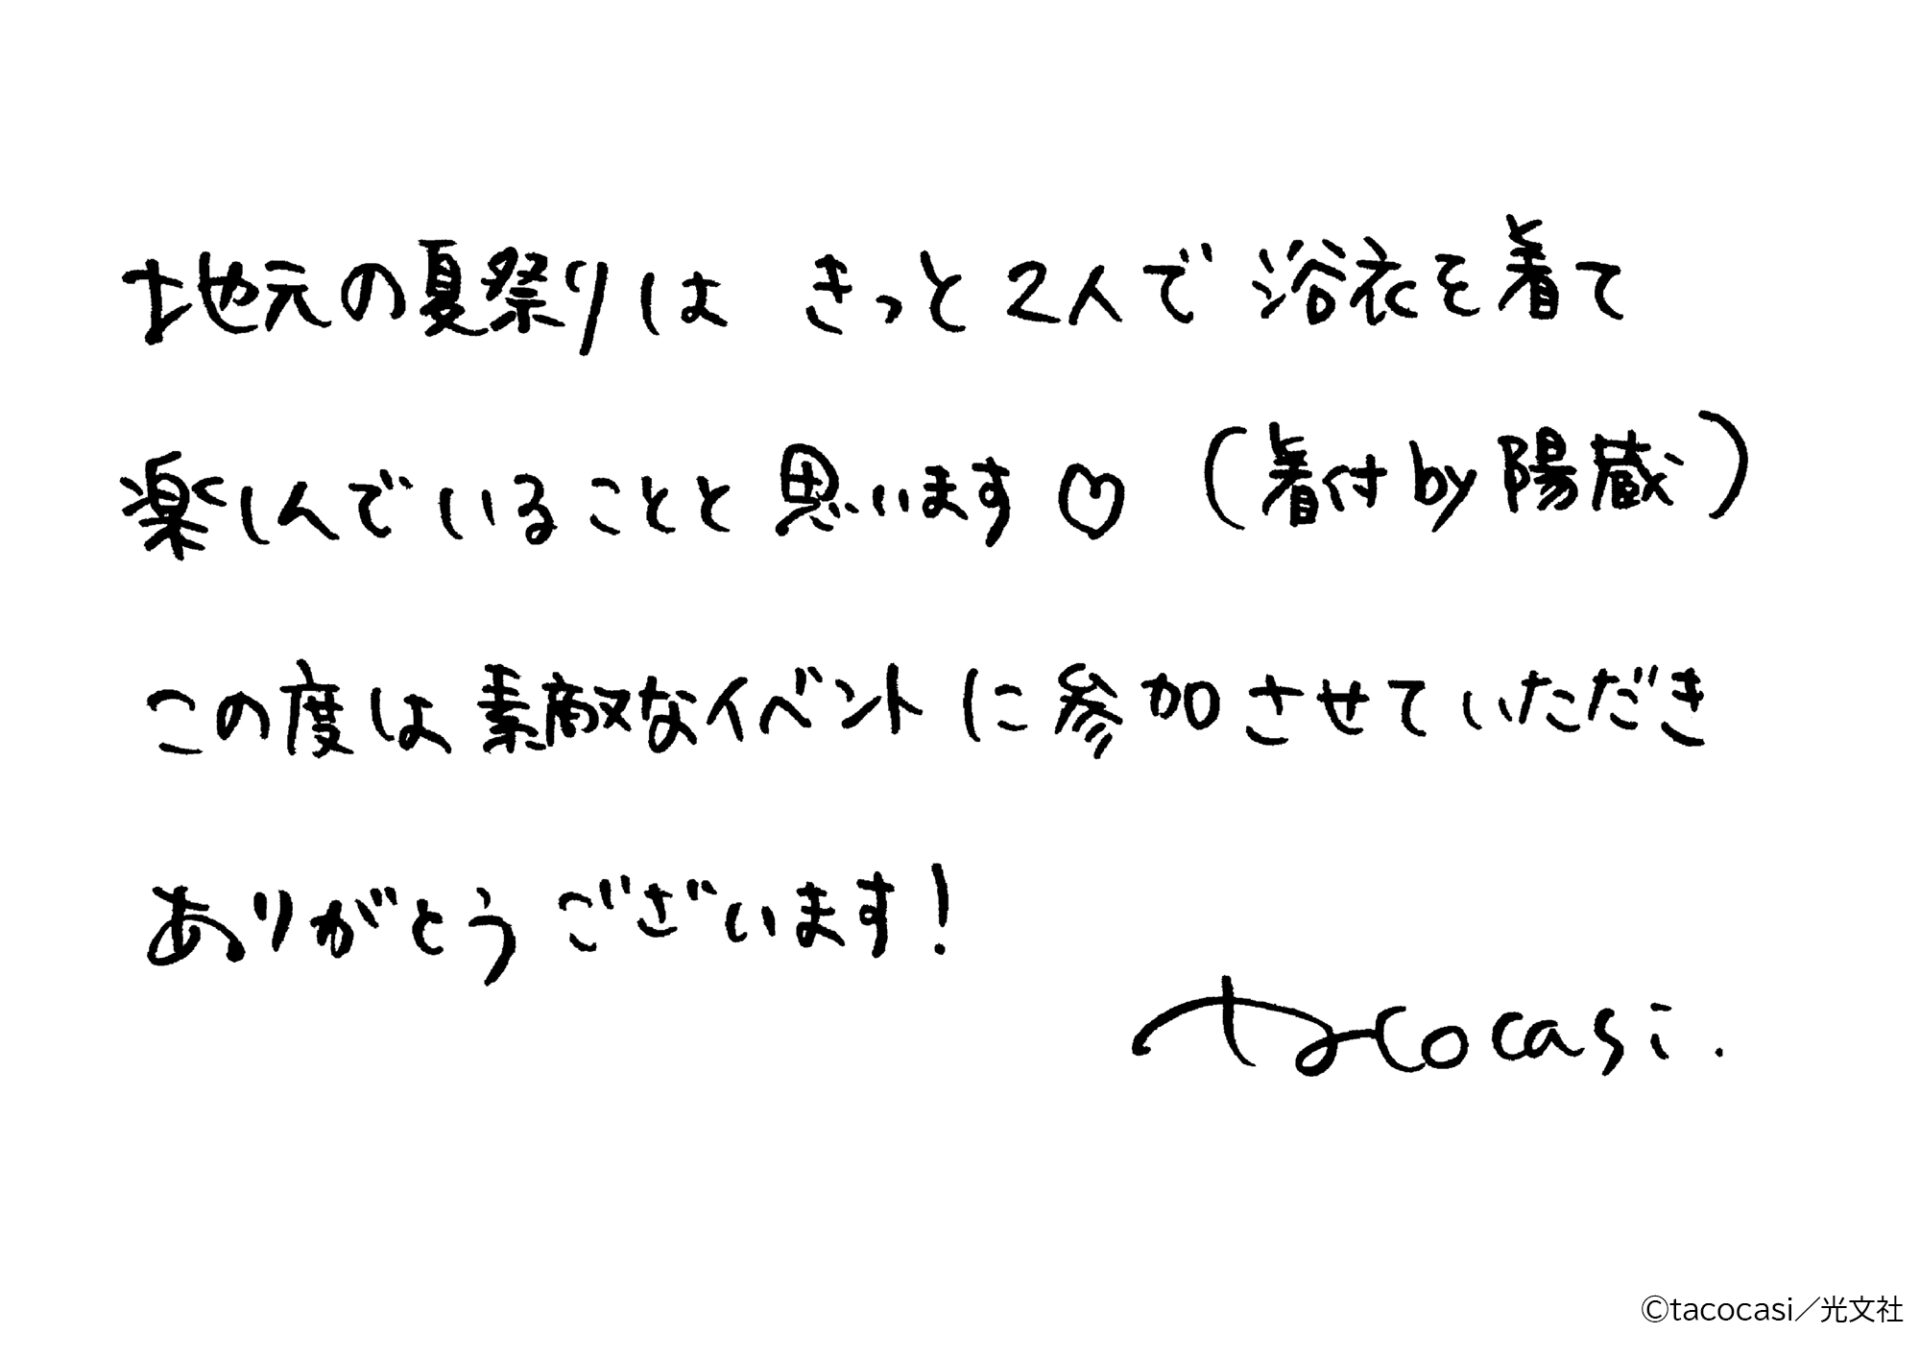 地元の夏祭りは きっと2人で浴衣を着て
楽しんでいることと思います♡ (着付by陽蔵)
この度は素敵なイベントに参加させていただき
ありがとうございます!
tacocasi.
©tacocasi/光文社